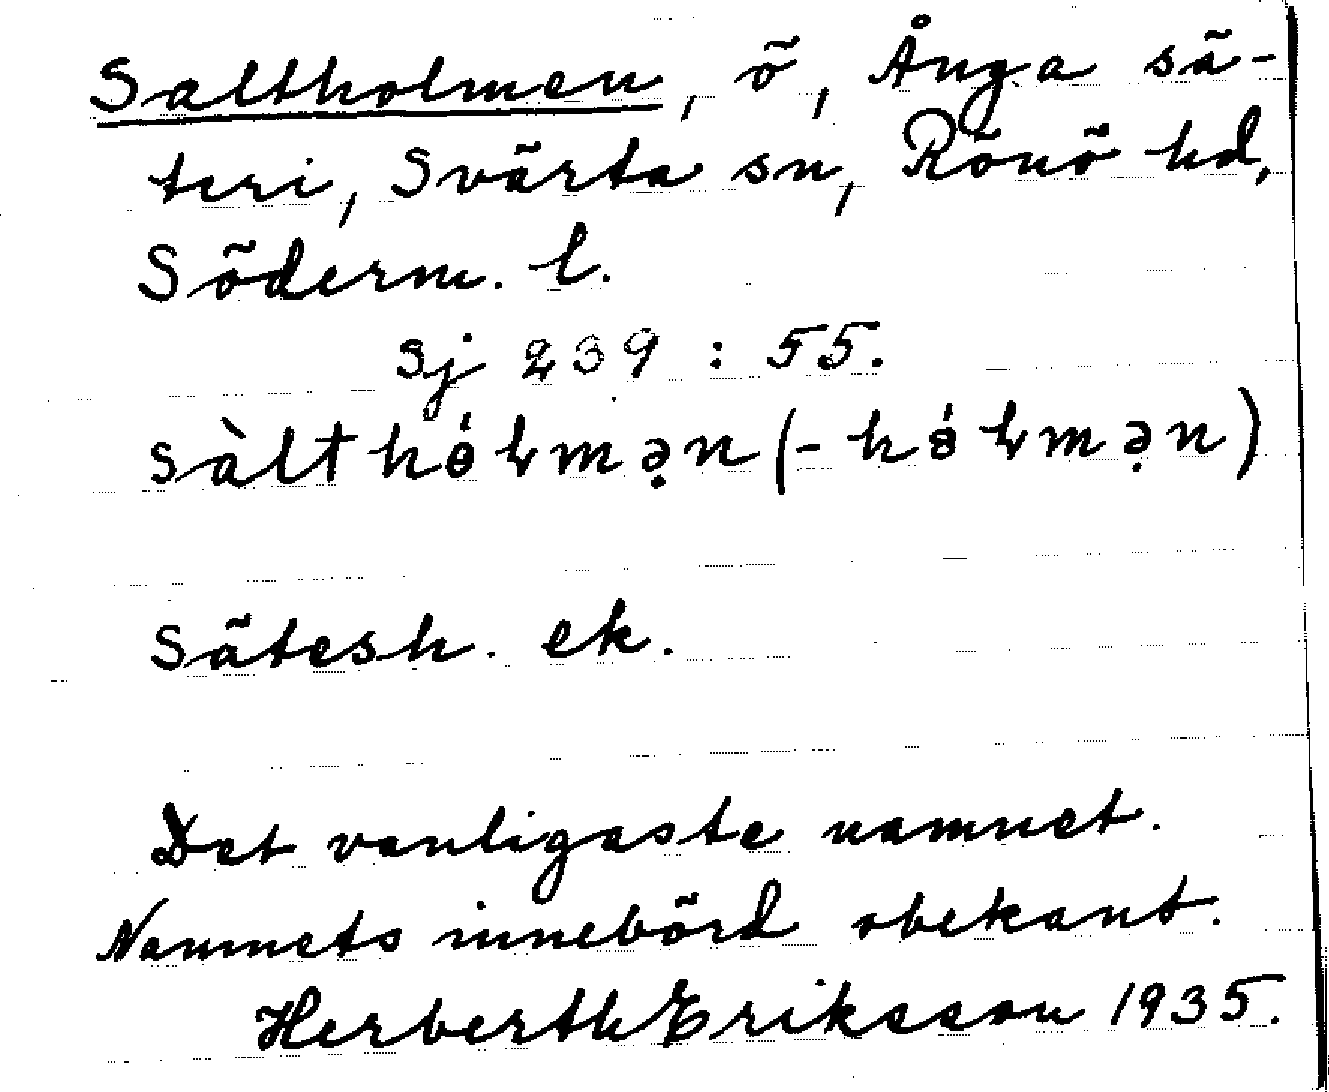 Saltholmen, ö, Ånga sä-
teri, Svärta sn, Rönö hd,
Söderm. l.
Sj 239 : 55.
sàlthɵ́ɫmə̣n (-hɵ́ɫmə̣n)
Sätesh. ek.
Det vanligaste namnet.
Namnets innebörd obekant.
Herberth Eriksson 1935.